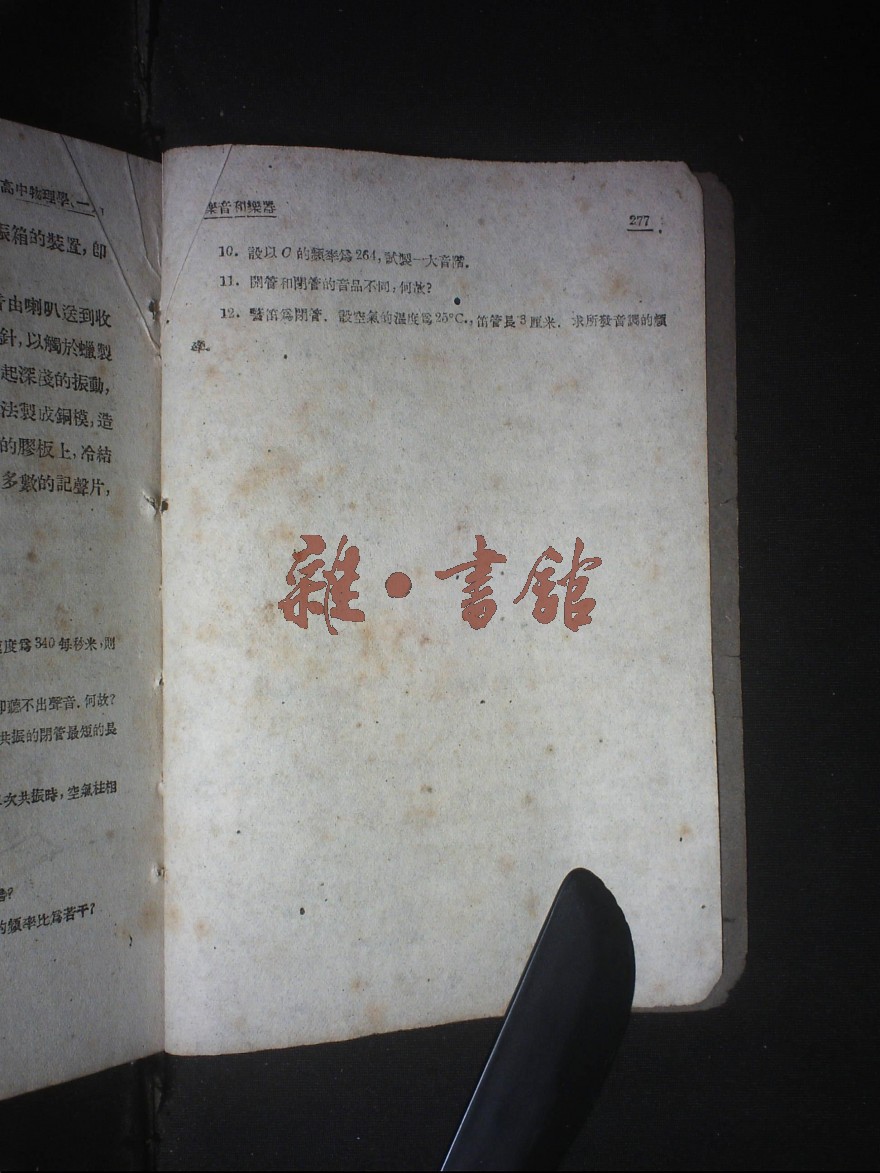 高中物理學(一)
振箱的裝置,卽
音由喇叭送到收
針,以觸於蠟製
起深淺的振動,
法製成銅模,造
的膠板上,冷結
多數的記聲片,
速度爲340每秒米,則
卽聽不出聲音.何故?
共振的閉管最短的長
次共振時,空氣柱相
的頻率比爲若干?
樂音和樂器
277
10. 設以C的頻率爲264,試製一大音階.
11. 開管和閉管的音品不同,何故?
12. 警笛爲閉管. 設空氣的溫度爲25°C.,笛管長8厘米. 求所發音調的頻
率.
雜·書館